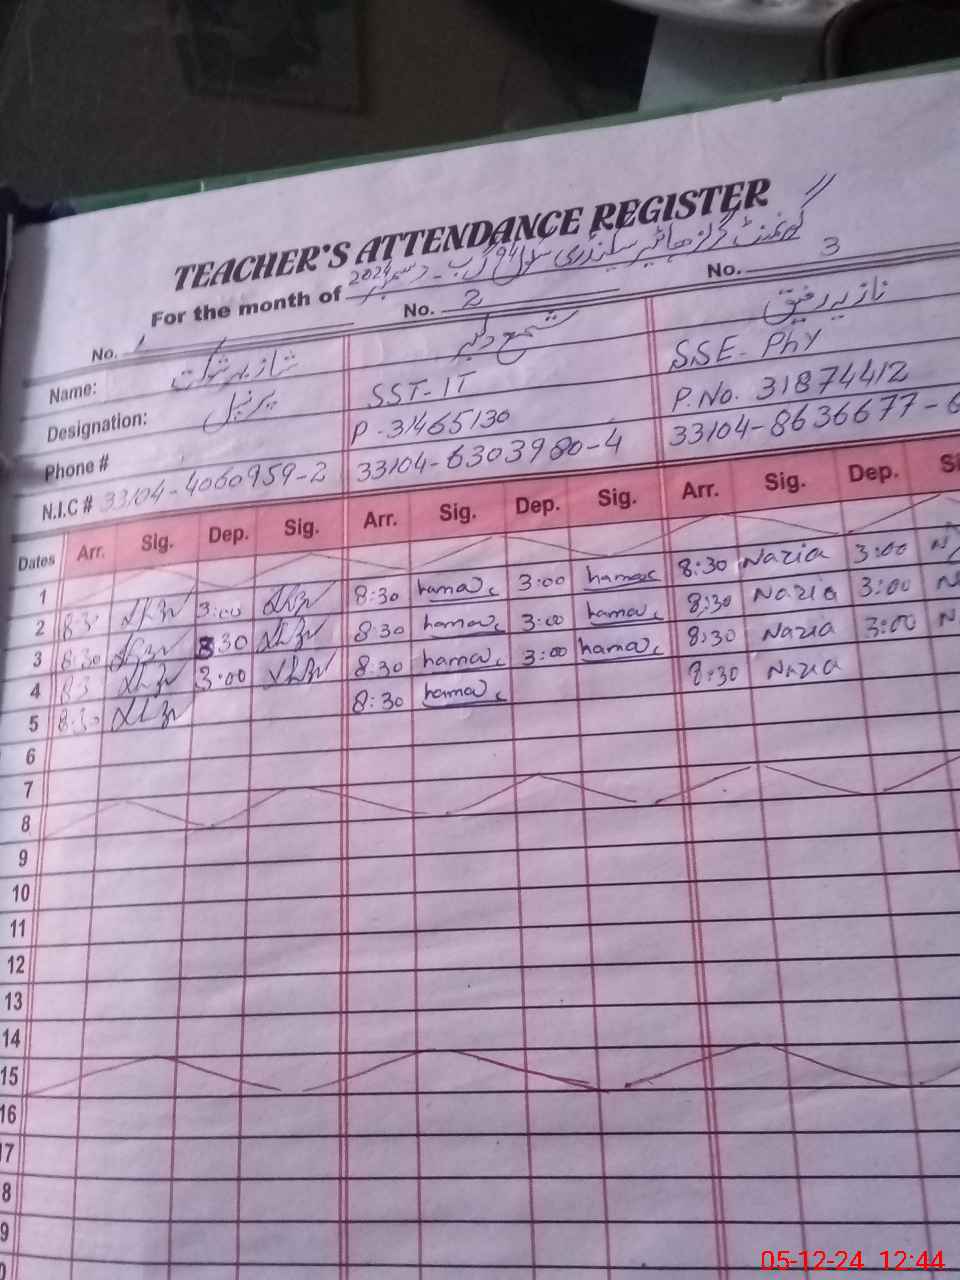 TEACHER'S ATTENDANCE REGISTER
For the month of گورنمنٹ گرلز ہائیر سیکنڈری سکول 94 گ ب ۔ دسمبر 2024
No. 1 No. 2 No. 3
Name: شازیہ شوکت شمع دلبر نازیہ رفیق
Designation: پرنسپل SST-IT SSE-PhY
Phone # P.31465130 P.No. 31874412
N.I.C # 33104-4060959-2 33104-6303980-4 33104-8636677-6
Dates Arr. Sig. Dep. Sig. Arr. Sig. Dep. Sig. Arr. Sig. Dep. Si
1
2 8:3 3:00 8:30 hama 3:00 hama 8:30 Nazia 3:00 N
3 8:30 8:30 8:30 hama 3:00 hama 8:30 Nazia 3:00 N
4 8:3 3:00 8:30 hama 3:00 hama 8:30 Nazia 3:00 N
5 8:30 8:30 hama 8:30 Nazia
6
7
8
9
10
11
12
13
14
15
16
17
8
9
0
05-12-24 12:44